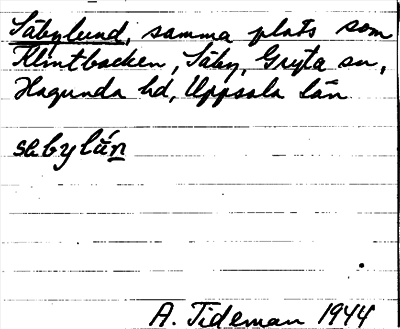 Säbylund, samma plats som
Klintbacken, Säby, Gryta sn,
Hagunda hd, Uppsala län
sebylún
A. Tideman 1944